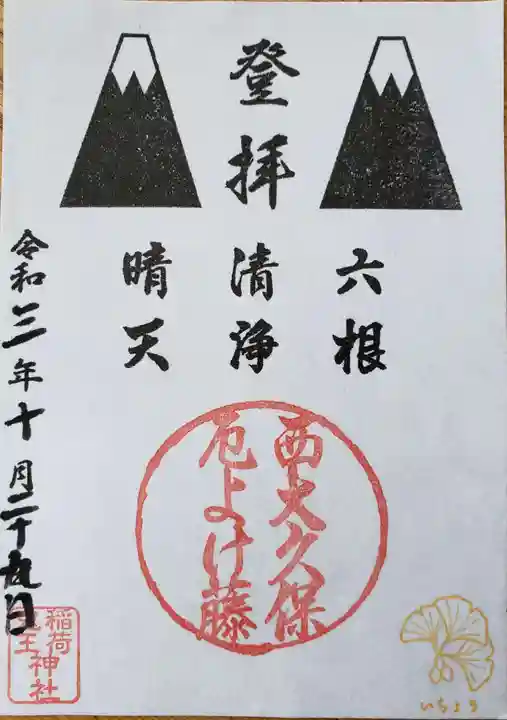 登拝
六根
清浄
晴天
西大久保
厄よけ藤
令和三年十月二十九日
稲荷
鬼王
神社
いちょう